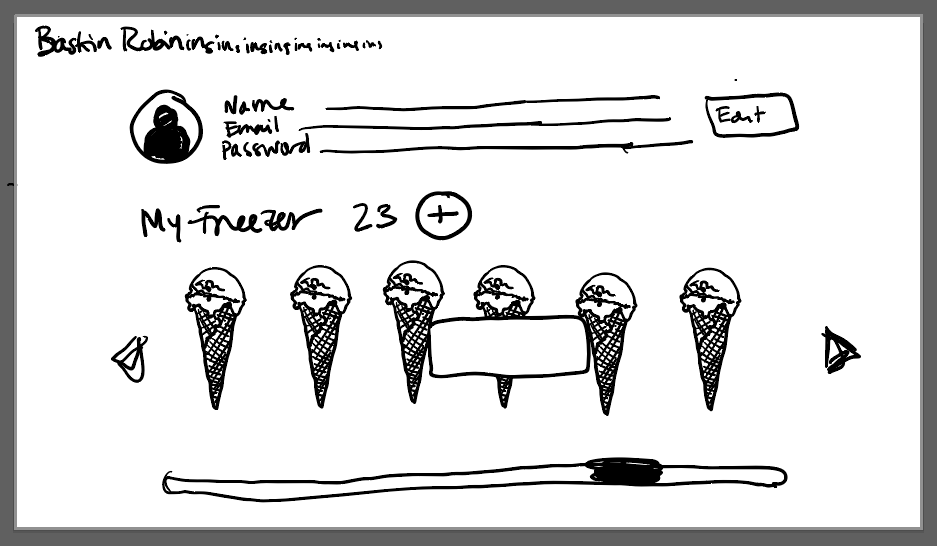 Baskin Robininsins.insinsinsinsinsins
Name
Email
Password
Edit
My Freezer 23 +